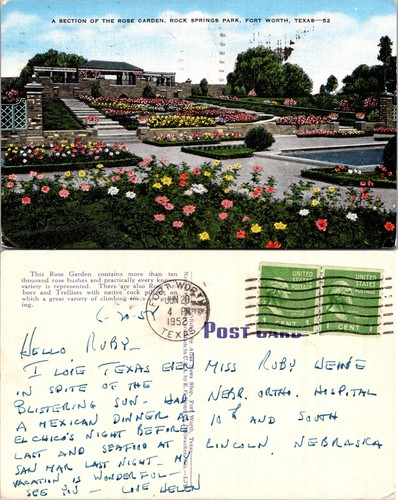 A SECTION OF THE ROSE GARDEN, ROCK SPRINGS PARK, FORT WORTH, TEXAS—52
This Rose Garden contains more than ten
thousand rose bushes and practically every known
variety is represented. There are also
bors and Trellises with native rock
which a great variety of climbing
ing.
FORT WORTH
JUN 20
4 PM
1952
TEXAS
UNITED STATES POSTAGE
1 CENT
UNITED STATES POSTAGE
1 CENT
POST CARD
HELLO, RUBY—
I LOVE TEXAS EVEN
IN SPITE OF THE
BLISTERING SUN— HAD
A MEXICAN DINNER AT
EL CHICO'S NIGHT BEFORE
LAST AND SEAFOOD AT
SAN MAR LAST NIGHT— MY
VACATION IS WONDERFUL—
SEE YOU— LOVE HELEN
MISS RUBY
NEBR. ORTHO. HOSPITAL
10th AND SOUTH
LINCOLN, NEBRASKA